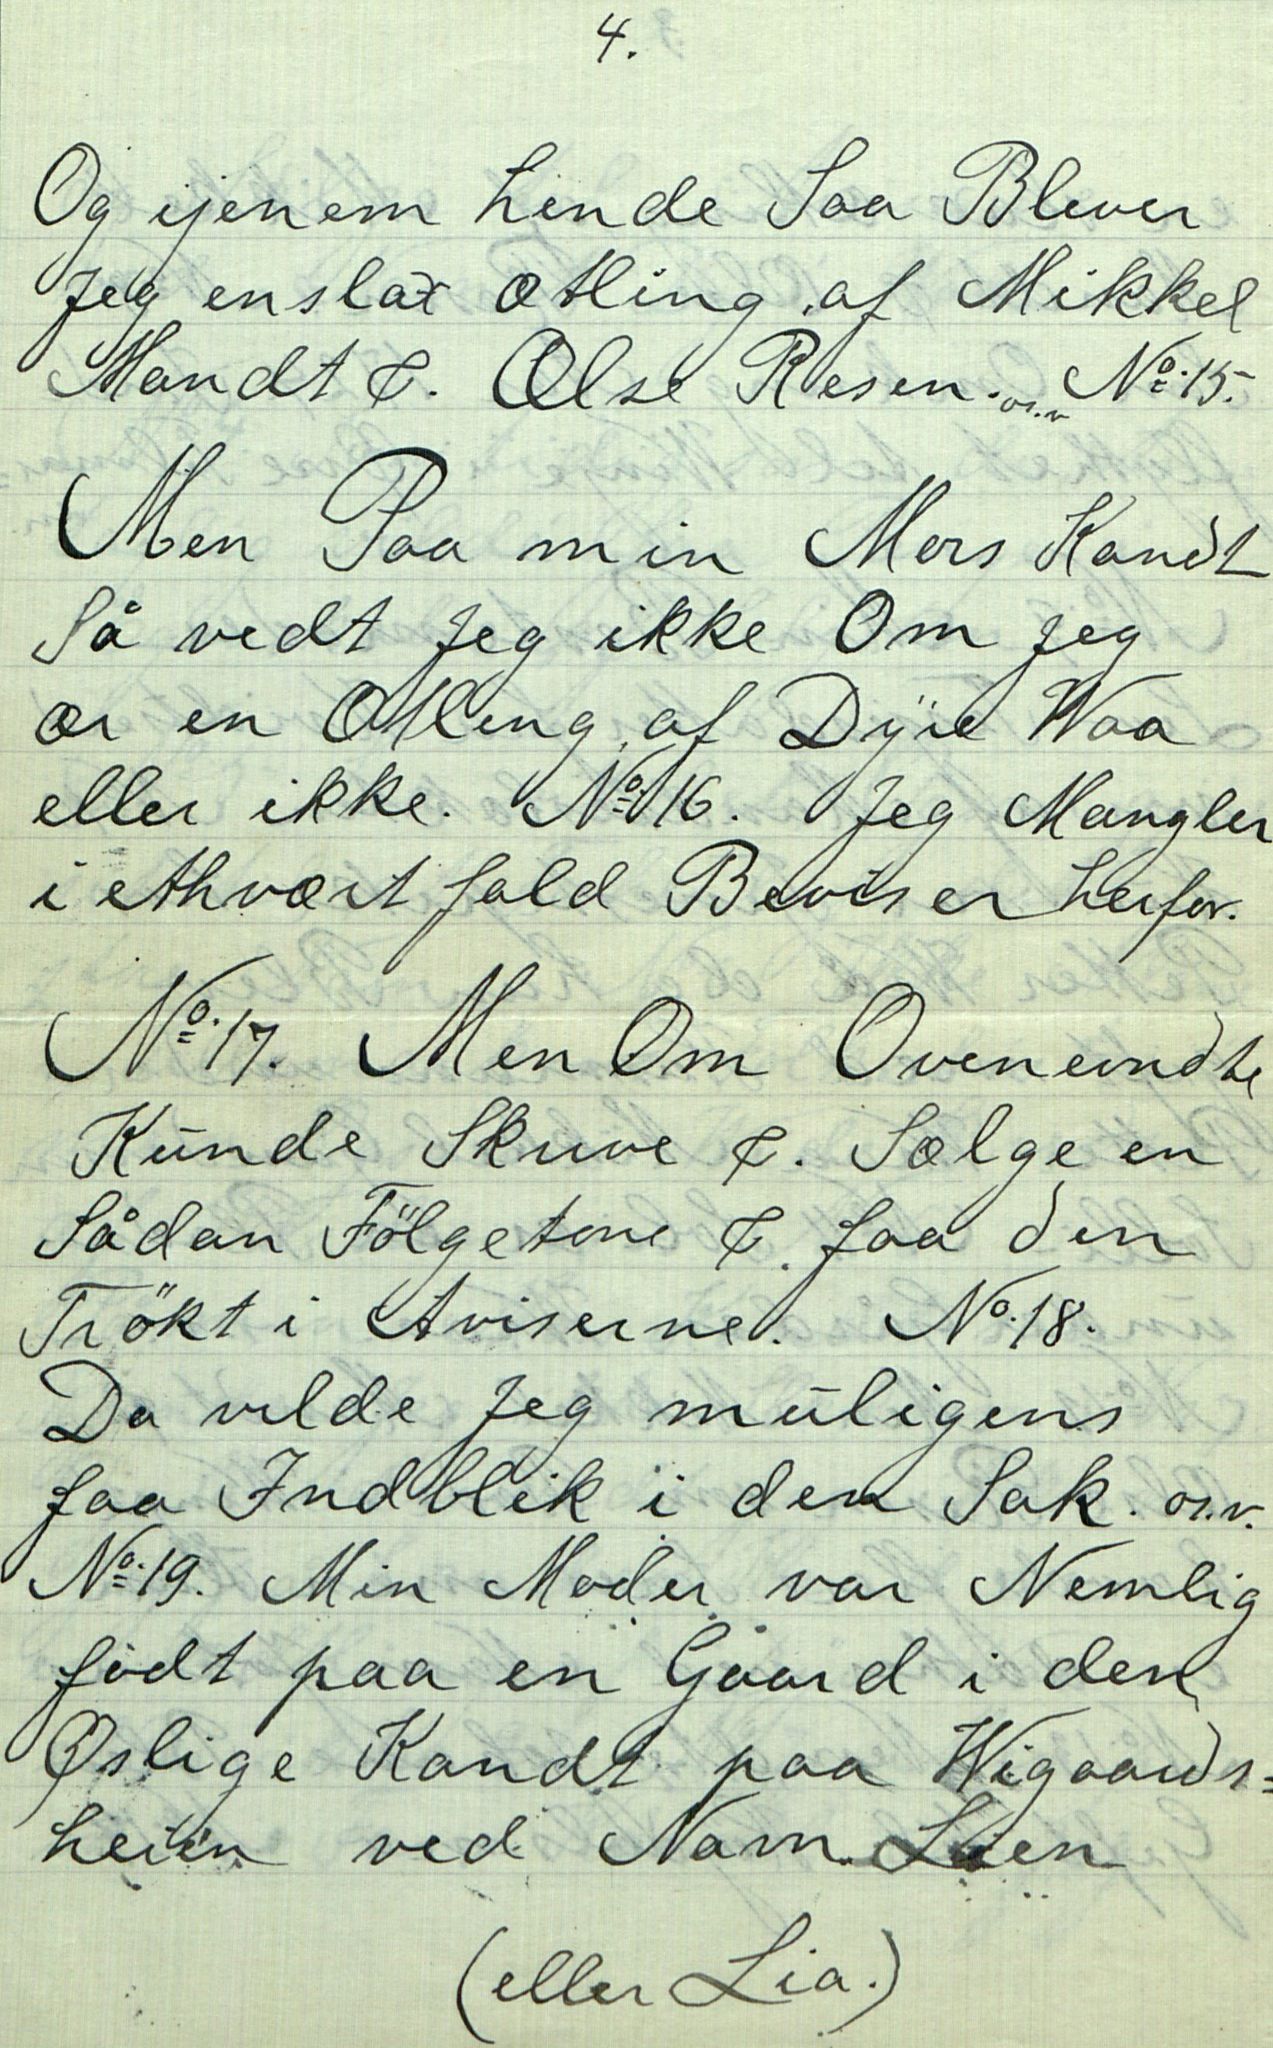 4.
Og ijenem hende Saa Blever
Jeg enslax ætling af Mikkel
Mandt &. Else Resen. os.v No. 15.
Men Paa min Mors Kandt
Så vedt Jeg ikke Om Jeg
ær en Ætleng af Dyre Waa
eller ikke. No. 16. Jeg Mangler
i ethvært fald Beviser herfor.
No. 17. Men Om Ovenevndte
Kunde Skuve &. Sælge en
Sådan Fölgetone &. faa den
Trökt i Aviserne. No. 18.
Da vilde Jeg muligens
faa Indblik i den Sak. os.v.
No. 19. Min Moder var Nemlig
födt paa en Gaard i den
Øslige Kandt paa Wigaards=
heien ved Navn Lien
(eller Lia.)